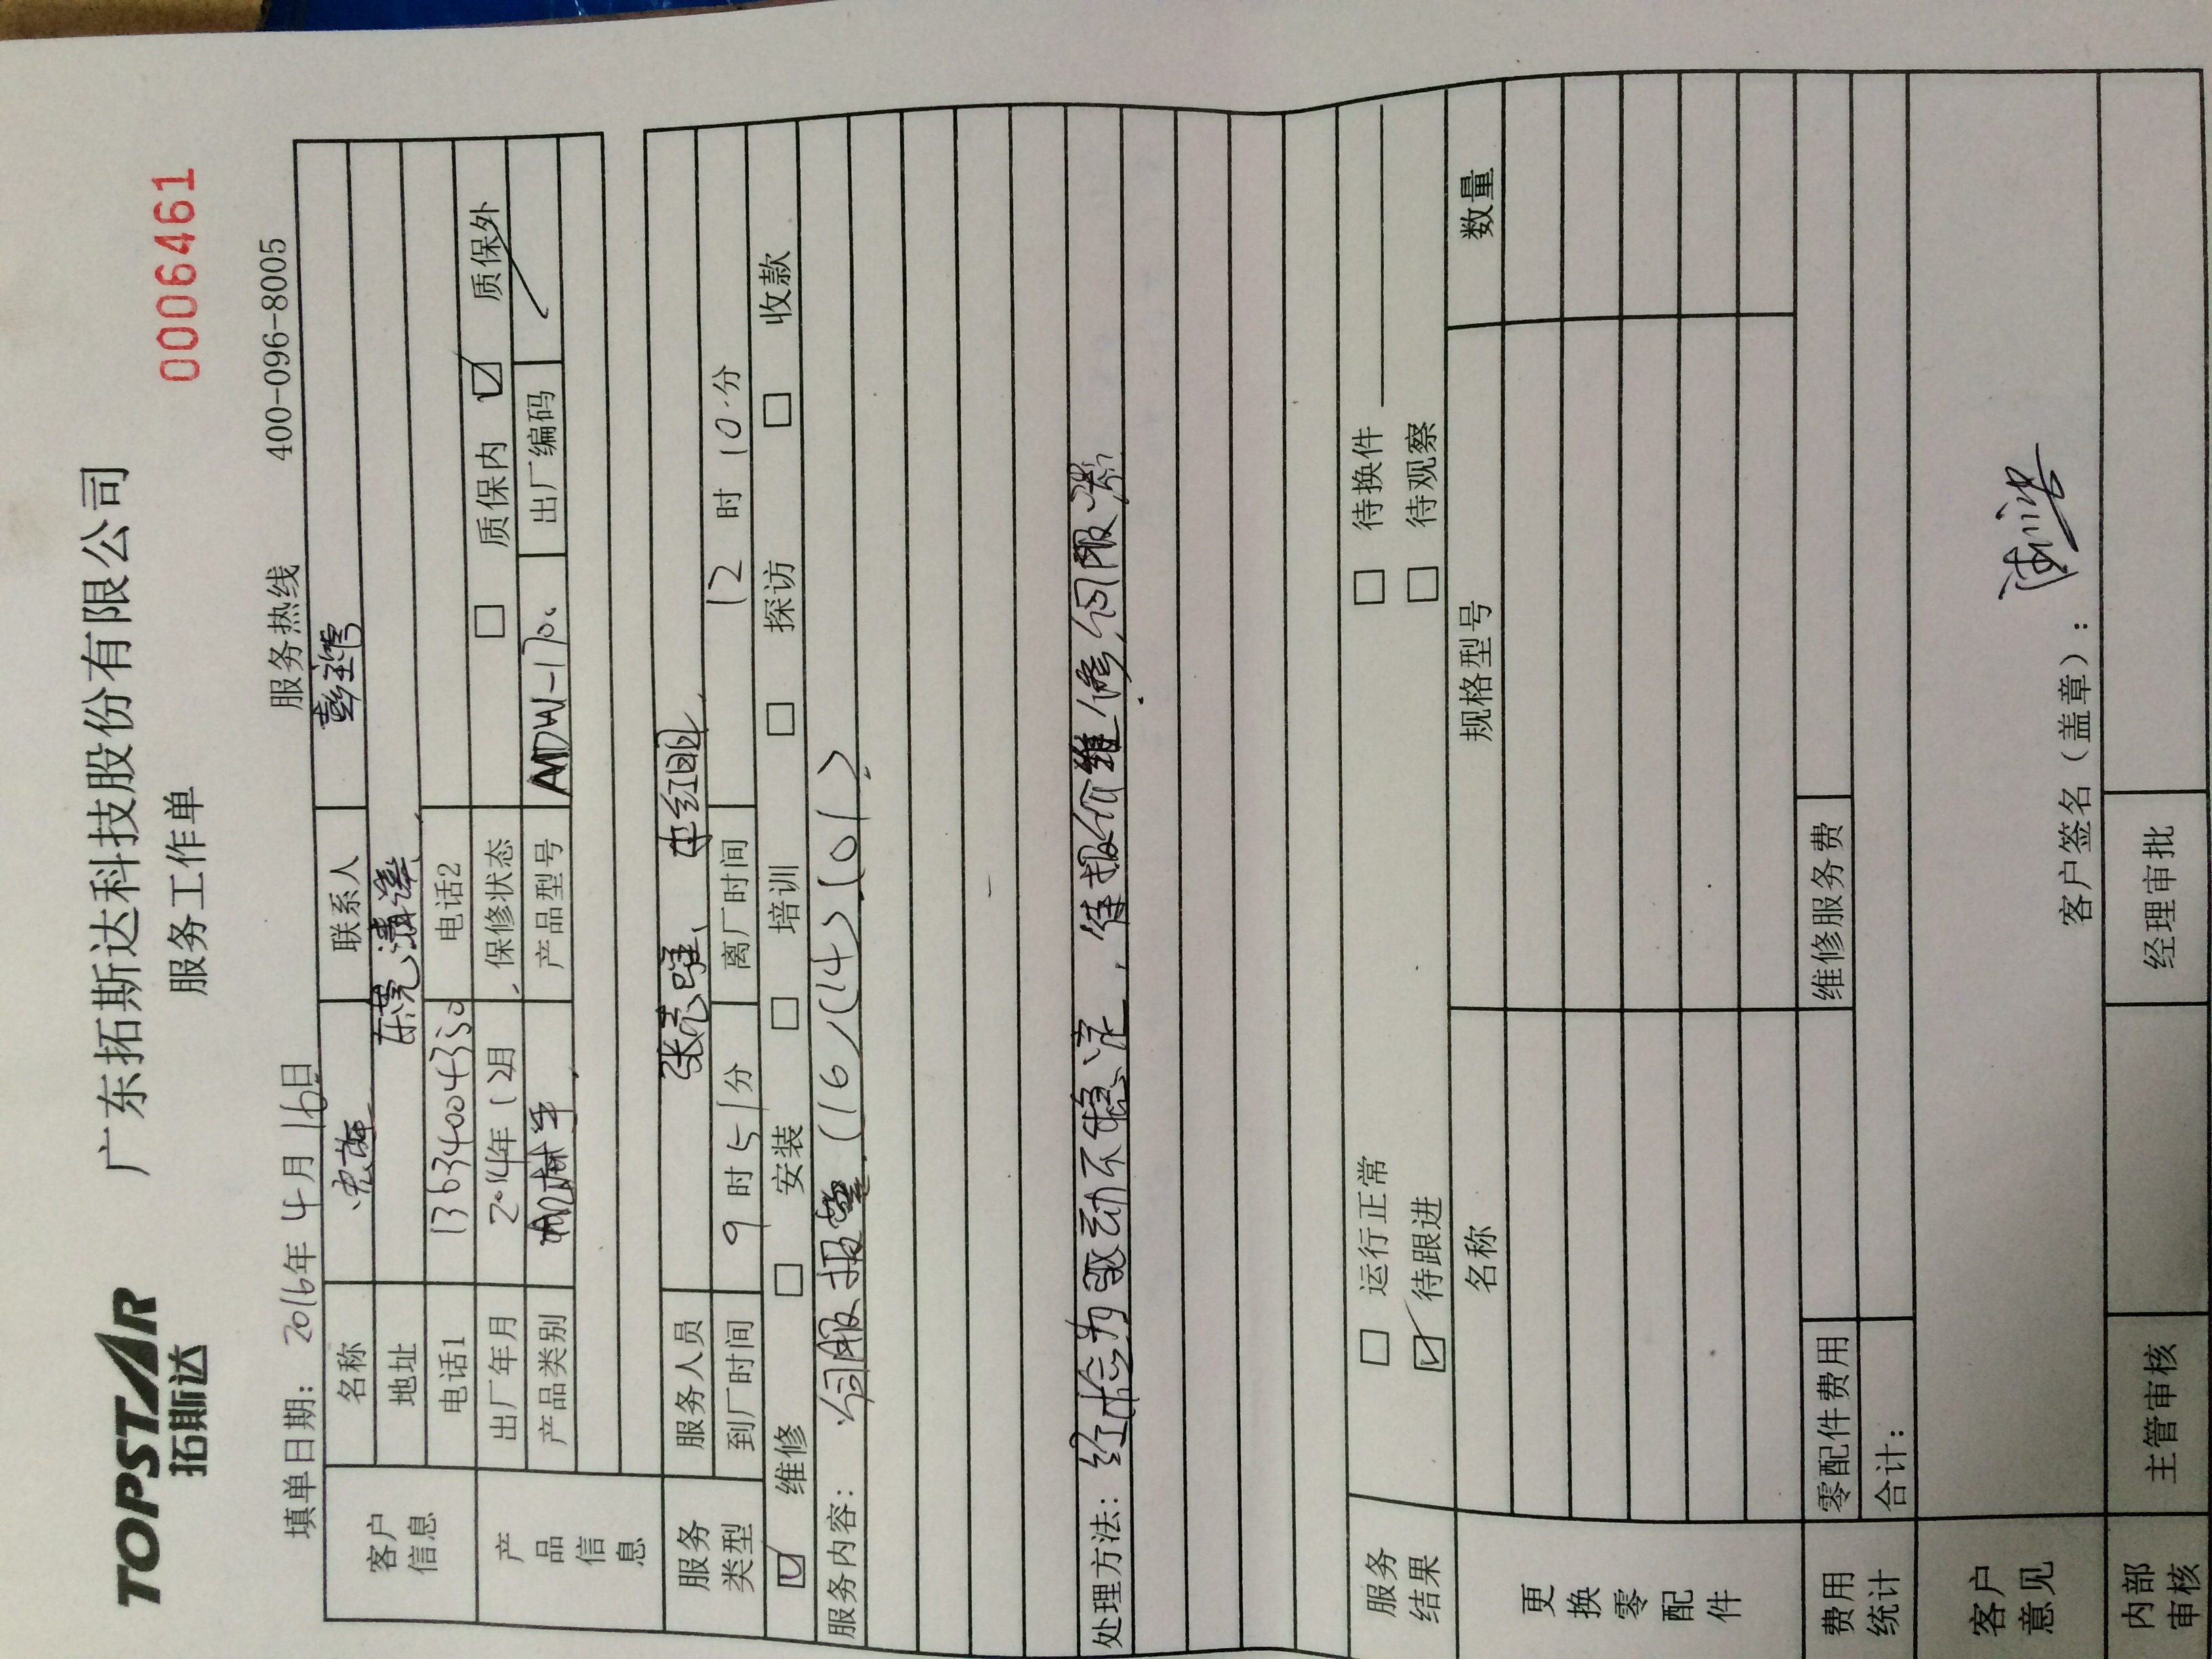 TOPSTAR 拓斯达
广东拓斯达科技股份有限公司
服务工作单
0006461
填单日期：2016年4月16日 服务热线 400-096-8005
客户信息
名称 联系人 彭主管
地址 东莞清溪
电话1 13634004350 电话2
产品信息
出厂年月 2014年12月 保修状态 □ 质保内 ☑ 质保外
产品类别 机械手 产品型号 出厂编码
服务类型
服务人员 张志唯、
到厂时间 9时51分 离厂时间 12时10分
☑ 维修 □ 安装 □ 培训 □ 探访 □ 收款
服务内容：伺服报警.(16)(14)(01)
处理方法：经检为驱动不稳定，待报价维修伺服
服务结果
□ 运行正常 □ 待换件
☑ 待跟进 □ 待观察
更换零配件
名称 规格型号 数量
费用统计
零配件费用 维修服务费
合计：
客户意见
客户签名（盖章）：
内部审核 主管审核 经理审批